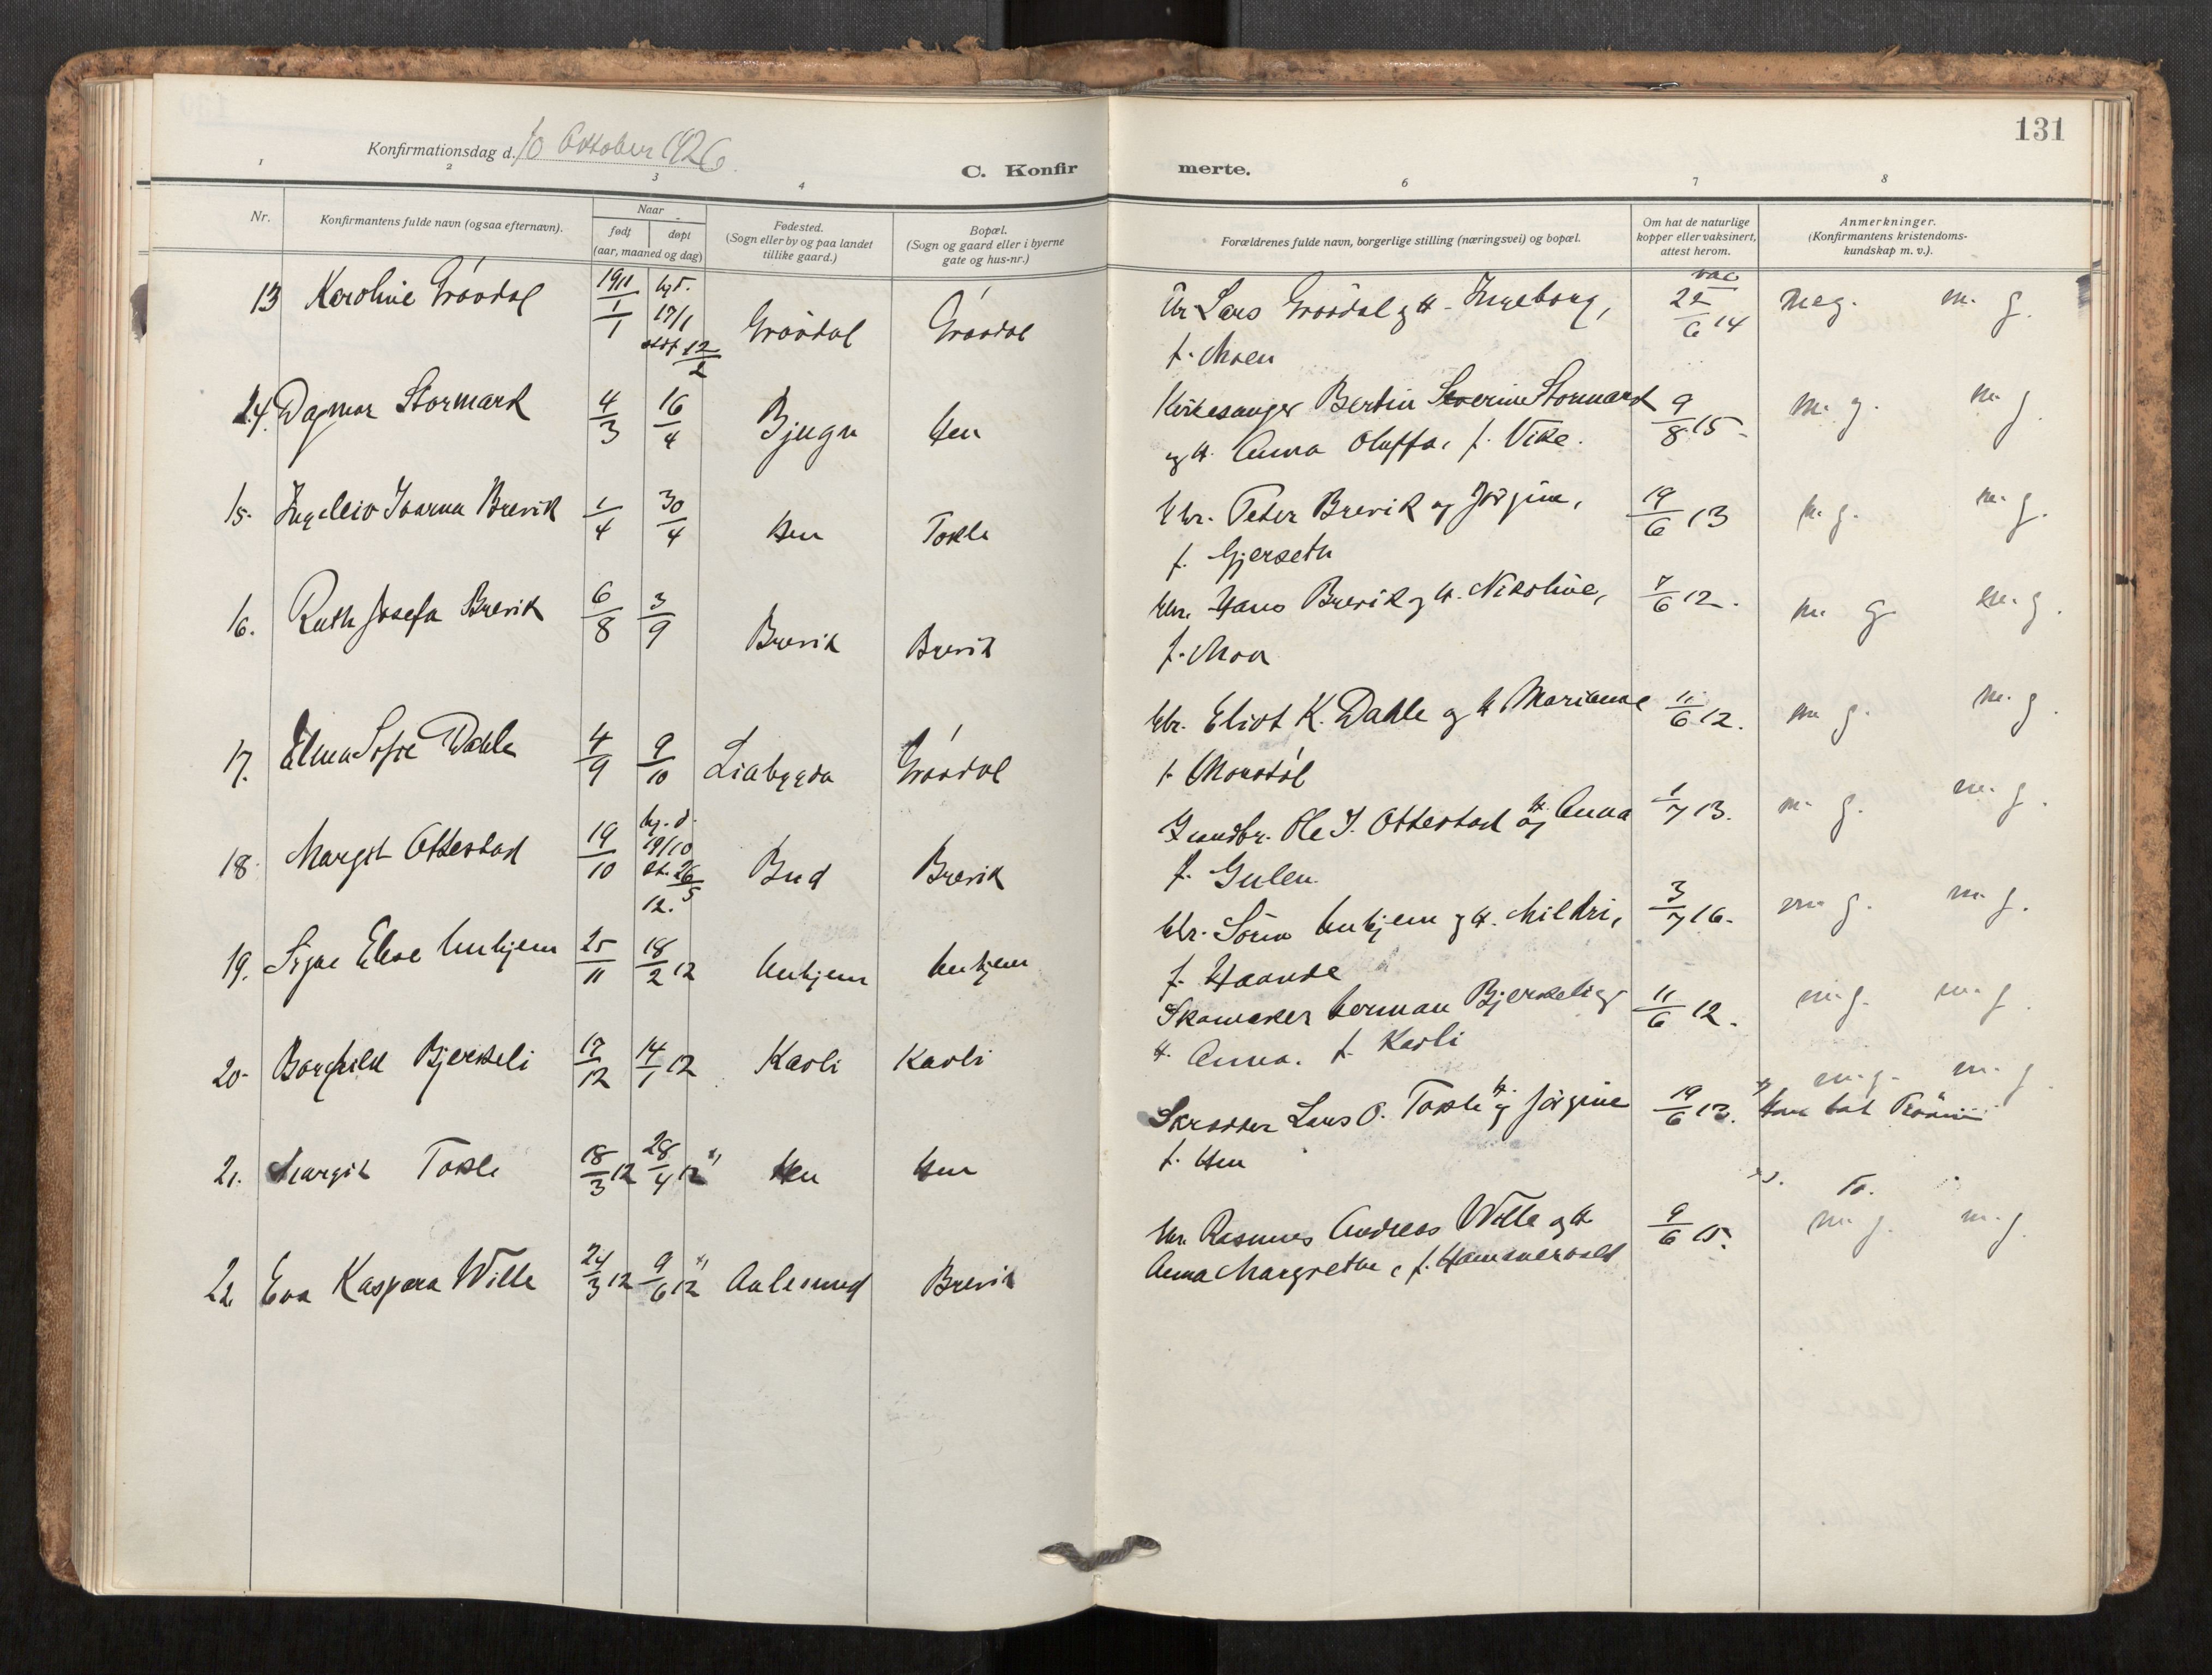 131
Konfirmationsdag d. 10 Oktober 1926.
C. Konfirmerte.
1 2 3 4 6 7 8
Nr.
Konfirmantens fulde navn (ogsaa efternavn).
Naar
født
døpt
(aar, maaned og dag)
Fødested.
(Sogn eller by og paa landet
tillike gaard.)
Bopæl.
(Sogn og gaard eller i byerne
gate og hus-nr.)
Forældrenes fulde navn, borgerlige stilling (næringsvei) og bopæl.
Om hat de naturlige
kopper eller vaksinert,
attest herom.
Anmerkninger.
(Konfirmantens kristendoms-
kundskap m. v.).
13 Karoline Grøvdal 1911 1/1 hj.d. 17/1 stdf 12/2 Grøvdal Grøvdal Gbr. Lars Grøvdal og H. Ingeborg, vac 22/6 14 meg. m. g.
f. Moen
14. Dagmar Stormark 4/3 16/4 Bjugn Hen Kirkesanger Bertin Severin Stormark 9/8 15. m. g. m. g.
og H. Anna Oluffa, f. Vike.
15. Ingeleiv Ivarna Brevik 1/4 30/4 Hen Tokle Gbr. Peter Brevik og Jørgine, 19/6 13 m. g. m. g.
f. Gjerseth
16. Ruth Josefa Brevik 6/8 3/9 Brevik Brevik Gbr. Hans Brevik og H. Nikoline, 7/6 12. m. g. m. g.
f. Moen
17. Elma Sofie Dahle 4/9 9/10 Liabygda Grøvdal Gbr. Eliot K. Dahle og H Marianne 11/6 12. m. g. m. g.
18. Margit Ottestad 19/10 hj. d. 19/10 st. 26/5 12. Bud Brevik Ole I. Ottestad og H. Anna 1/7 13. m. g. m. g.
f. Gulen.
19. Signe Elise Unhjem 25/11 18/2 12 Unhjem Unhjem Gbr. Søren Unhjem og H. Mildri, 3/7 16. m. g. m. g.
f. Haande
20. Borghild Bjerkeli 17/12 14/1 12 Kavli Kavli Skomaker Herman Bjerkeli og 11/6 12. m. g. m. g.
H. Anna. f. Kavli
21. Margit Tokle 18/3 12 28/4 12 Hen Hen Skrædder Lars O. Tokle og H. Jørgine 19/6 13. m. g. m. g.
f. Hen
22. Eva Kaspara Wille 24/3 12 9/6 12 Aalesund Brevik Gbr. Rasmus Andreas Wille og H 9/6 15. m. g. m. g.
Anna Margrethe, f. Hammervold